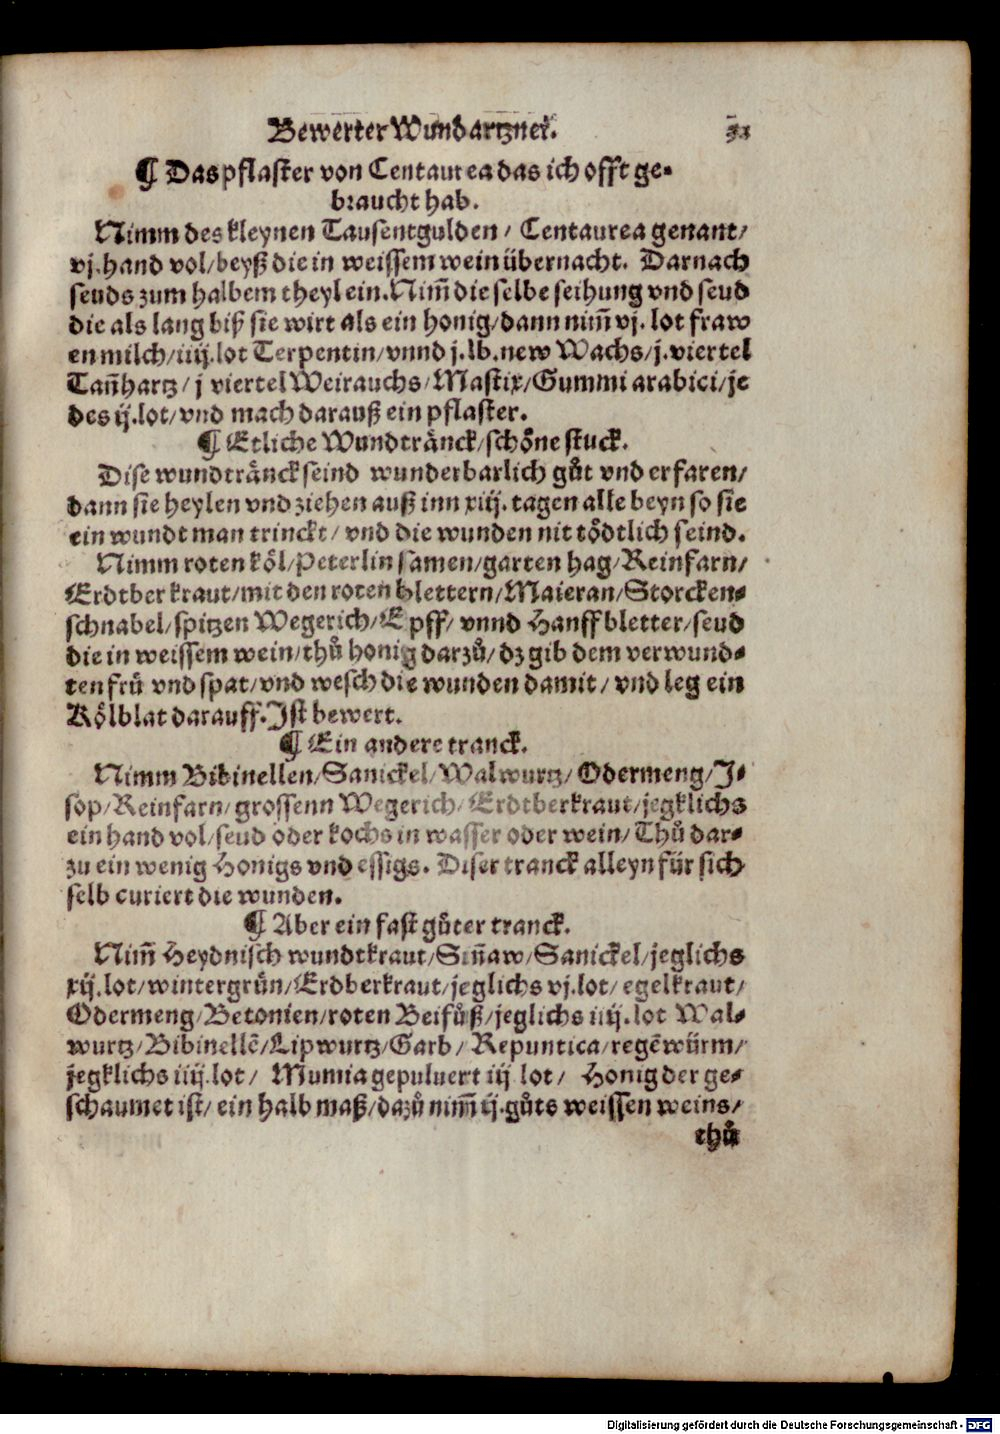 Bewerter Wundartznei. 31
¶ Das pflaster von Centaurea das ich offt ge-
braucht hab.
Nimm des kleynen Tausentgulden / Centaurea genant/
vj. hand vol/beyß die in weissem wein übernacht. Darnach
seuds zum halbem theyl ein. Nim̃ die selbe seihung vnd seud
die als lang biß sie wirt als ein honig/dann nim̃ vj. lot fraw
en milch/iiij.lot Terpentin/vnnd j.lb.new Wachs/j.viertel
Tañhartz/j viertel Weirauchs/Mastix/Gummi arabici/je
des ij.lot/vnd mach darauß ein pflaster.
¶ Etliche Wundtränck/schöne stuck.
Dise wundtränck seind wunderbarlich gůt vnd erfaren/
dann sie heylen vnd ziehen auß inn xiiij. tagen alle beyn so sie
ein wundt man trinckt/ vnd die wunden nit tödtlich seind.
Nimm roten köl/Peterlin samen/garten hag/Reinfarn/
Erdtber kraut/mit den roten blettern/Maieran/Storcken-
schnabel/spitzen Wegerich/Epff/ vnnd Hanffbletter/seud
die in weissem wein/thů honig darzů/dz gib dem verwund-
ten frů vnd spat/vnd wesch die wunden damit/ vnd leg ein
Kölblat darauff. Ist bewert.
¶ Ein andere tranck.
Nimm Bibinellen/Sanickel/Walwurtz/Odermeng/J-
sop/Reinfarn/grossenn Wegerich/Erdtberkraut/jegklichs
ein hand vol/seud oder kochs in wasser oder wein/Thů dar-
zu ein wenig Honigs vnd essigs. Diser tranck alleyn für sich
selb curiert die wunden.
¶ Aber ein fast gůter tranck.
Nim̃ Heydnisch wundtkraut/Siñaw/Sanickel/jeglichs
xij.lot/wintergrün/Erdberkraut/jeglichs vj.lot/egelkraut/
Odermeng/Betonien/roten Beifůß/jeglichs iiij.lot Wal-
wurtz/Bibinellē/Lipwurtz/Garb/ Repuntica/regēwürm/
jegklichs iiij.lot/ Mumia gepuluert iij lot/ Honig der ge-
schaumet ist/ ein halb maß/dazů nim̃ ij.gůts weissen weins/
thů
Digitalisierung gefördert durch die Deutsche Forschungsgemeinschaft - DFG